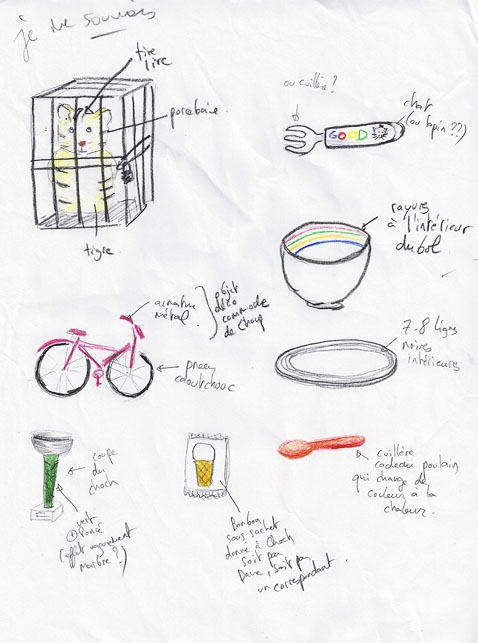 je me souviens
tire
lire
porcelaine.
tigre
ou cuillère?
GOOD
chat
(ou lapin??)
rayures
à l'intérieur
du bol
armature
métal.
objet
déco
commode
de Choup
pneu
caoutchouc
7-8 lignes
noires
intérieures
coupe
du
choch
vert
foncé
(effet
marbre?)
Bonbon
sous sachet
donné à Choch
soit par
Dave, soit par
un correspondant.
cuillère
cadeau poulain
qui change de
couleur à la
chaleur.